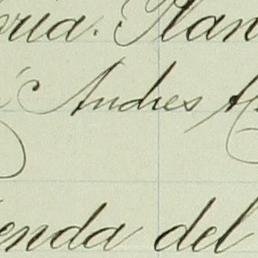 oria. Plan
Andres
enda del